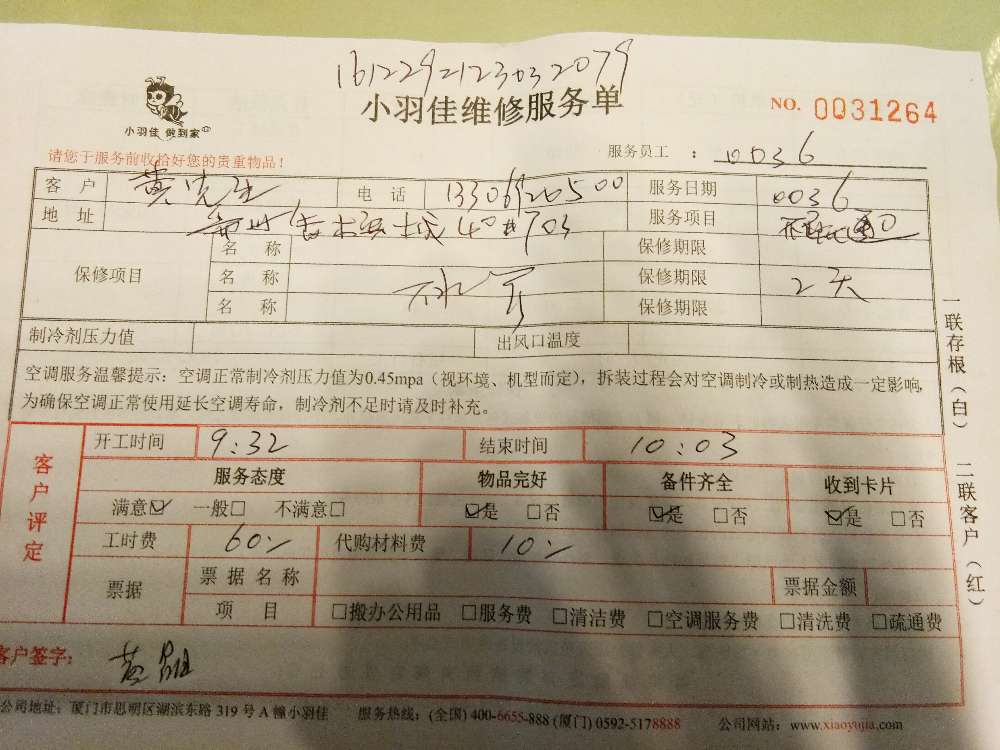 1612292123032079
小羽佳 做到家
小羽佳维修服务单
NO. 0031264
请您于服务前收拾好您的贵重物品!
服务员工 : 0036
客 户 黄先生 电 话 13306920500 服务日期 0036
地 址 40#703 服务项目
保修项目 名 称 保修期限
名 称 保修期限 2天
名 称 保修期限
制冷剂压力值 出风口温度
空调服务温馨提示:空调正常制冷剂压力值为0.45mpa(视环境、机型而定),拆装过程会对空调制冷或制热造成一定影响,
为确保空调正常使用延长空调寿命,制冷剂不足时请及时补充。
一联存根(白) 二联客户(红)
客户评定
开工时间 9:32 结束时间 10:03
服务态度 物品完好 备件齐全 收到卡片
满意☑ 一般□ 不满意□ ☑是 □否 ☑是 □否 ☑是 □否
工时费 60 代购材料费 10
票据 票据名称 票据金额
项 目 □搬办公用品 □服务费 □清洁费 □空调服务费 □清洗费 □疏通费
客户签字: 黄
公司地址:厦门市思明区湖滨东路 319 号 A 幢小羽佳 服务热线:(全国) 400-6655-888 (厦门) 0592-5178888 公司网站:www.xiaoyujia.com